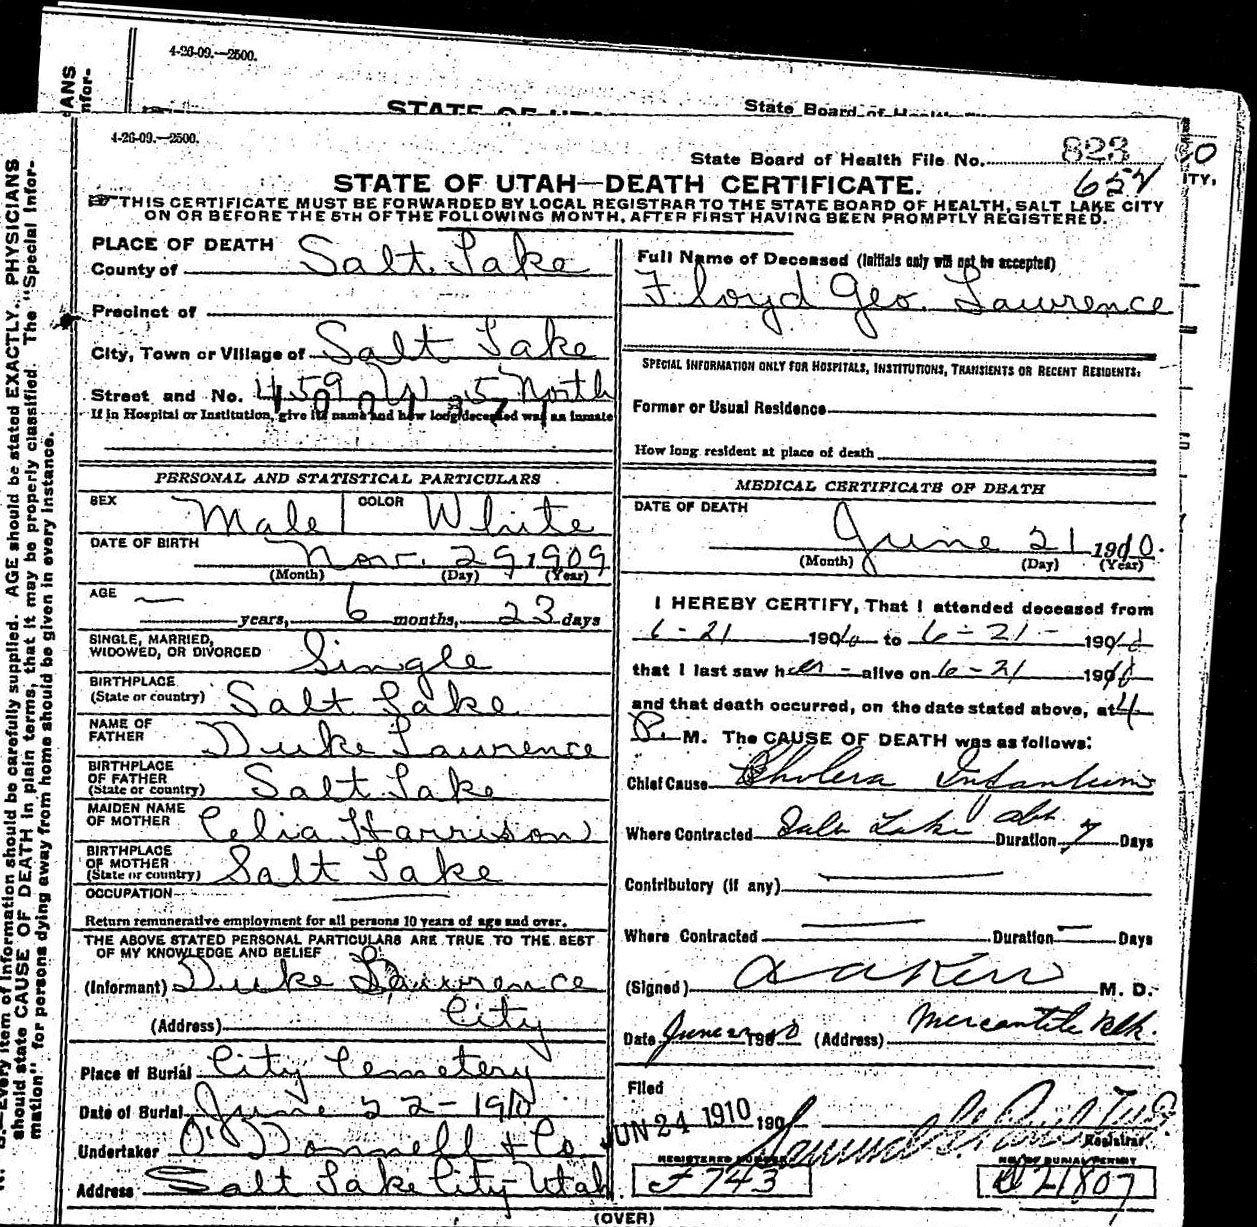 4-26-09.—2500.
State Board of Health
STATE OF UTAH
ANS
nfor-
4-26-09.—2500.
State Board of Health File No. 823
657
STATE OF UTAH—DEATH CERTIFICATE.
THIS CERTIFICATE MUST BE FORWARDED BY LOCAL REGISTRAR TO THE STATE BOARD OF HEALTH, SALT LAKE CITY
ON OR BEFORE THE 5TH OF THE FOLLOWING MONTH, AFTER FIRST HAVING BEEN PROMPTLY REGISTERED.
Every item of information should be carefully supplied. AGE should be stated EXACTLY. PHYSICIANS
should state CAUSE OF DEATH in plain terms, that it may be properly classified. The "Special Infor-
mation" for persons dying away from home should be given in every instance.
PLACE OF DEATH
County of Salt Lake
Precinct of
City, Town or Village of Salt Lake
Street and No. 459 W 5 North
If in Hospital or Institution, give its name and how long deceased was an inmate
PERSONAL AND STATISTICAL PARTICULARS
SEX Male COLOR White
DATE OF BIRTH Nov. 29 1909
(Month) (Day) (Year)
AGE — years, 6 months, 23 days
SINGLE, MARRIED,
WIDOWED, OR DIVORCED Single
BIRTHPLACE
(State or country) Salt Lake
NAME OF
FATHER Duke Lawrence
BIRTHPLACE
OF FATHER
(State or country) Salt Lake
MAIDEN NAME
OF MOTHER Celia Harrison
BIRTHPLACE
OF MOTHER
(State or country) Salt Lake
OCCUPATION
Return remunerative employment for all persons 10 years of age and over.
THE ABOVE STATED PERSONAL PARTICULARS ARE TRUE TO THE BEST
OF MY KNOWLEDGE AND BELIEF
(Informant) Duke Lawrence
(Address) City
Place of Burial City Cemetery
Date of Burial June 22-1910
Undertaker O'Donnell & Co.
Address Salt Lake City Utah
Full Name of Deceased (Initials only will not be accepted)
Floyd Geo. Lawrence
SPECIAL INFORMATION ONLY FOR HOSPITALS, INSTITUTIONS, TRANSIENTS OR RECENT RESIDENTS:
Former or Usual Residence
How long resident at place of death
MEDICAL CERTIFICATE OF DEATH
DATE OF DEATH
June 21 1910.
(Month) (Day) (Year)
I HEREBY CERTIFY, That I attended deceased from
6-21 1910 to 6-21- 1910
that I last saw her alive on 6-21 1910
and that death occurred, on the date stated above, at 4
P. M. The CAUSE OF DEATH was as follows:
Chief Cause Cholera Infantum
Where Contracted Salt Lake abt Duration 7 Days
Contributory (if any)
Where Contracted Duration — Days
(Signed) A A Kerr M. D.
Date June 22 1910 (Address) Mercantile Blk.
Filed
JUN 24 1910 190
Registrar
REGISTERED NUMBER
J 743
NO. OF BURIAL PERMIT
D 21807
(OVER)